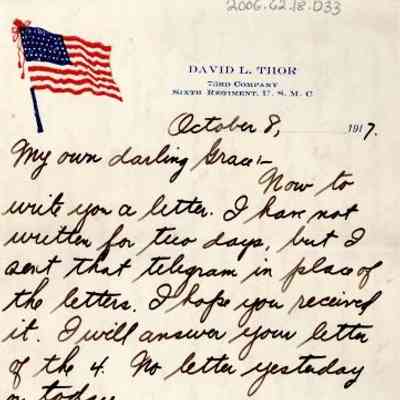 2006.62.18.D33
DAVID L. THOR
73RD COMPANY
SIXTH REGIMENT, U. S. M. C
October 8, 1917.
My own darling Grace:-
Now to
write you a letter. I have not
written for two days, but I
sent that telegram in place of
the letters. I hope you received
it. I will answer your letter
of the 4. No letter yesterday
or today